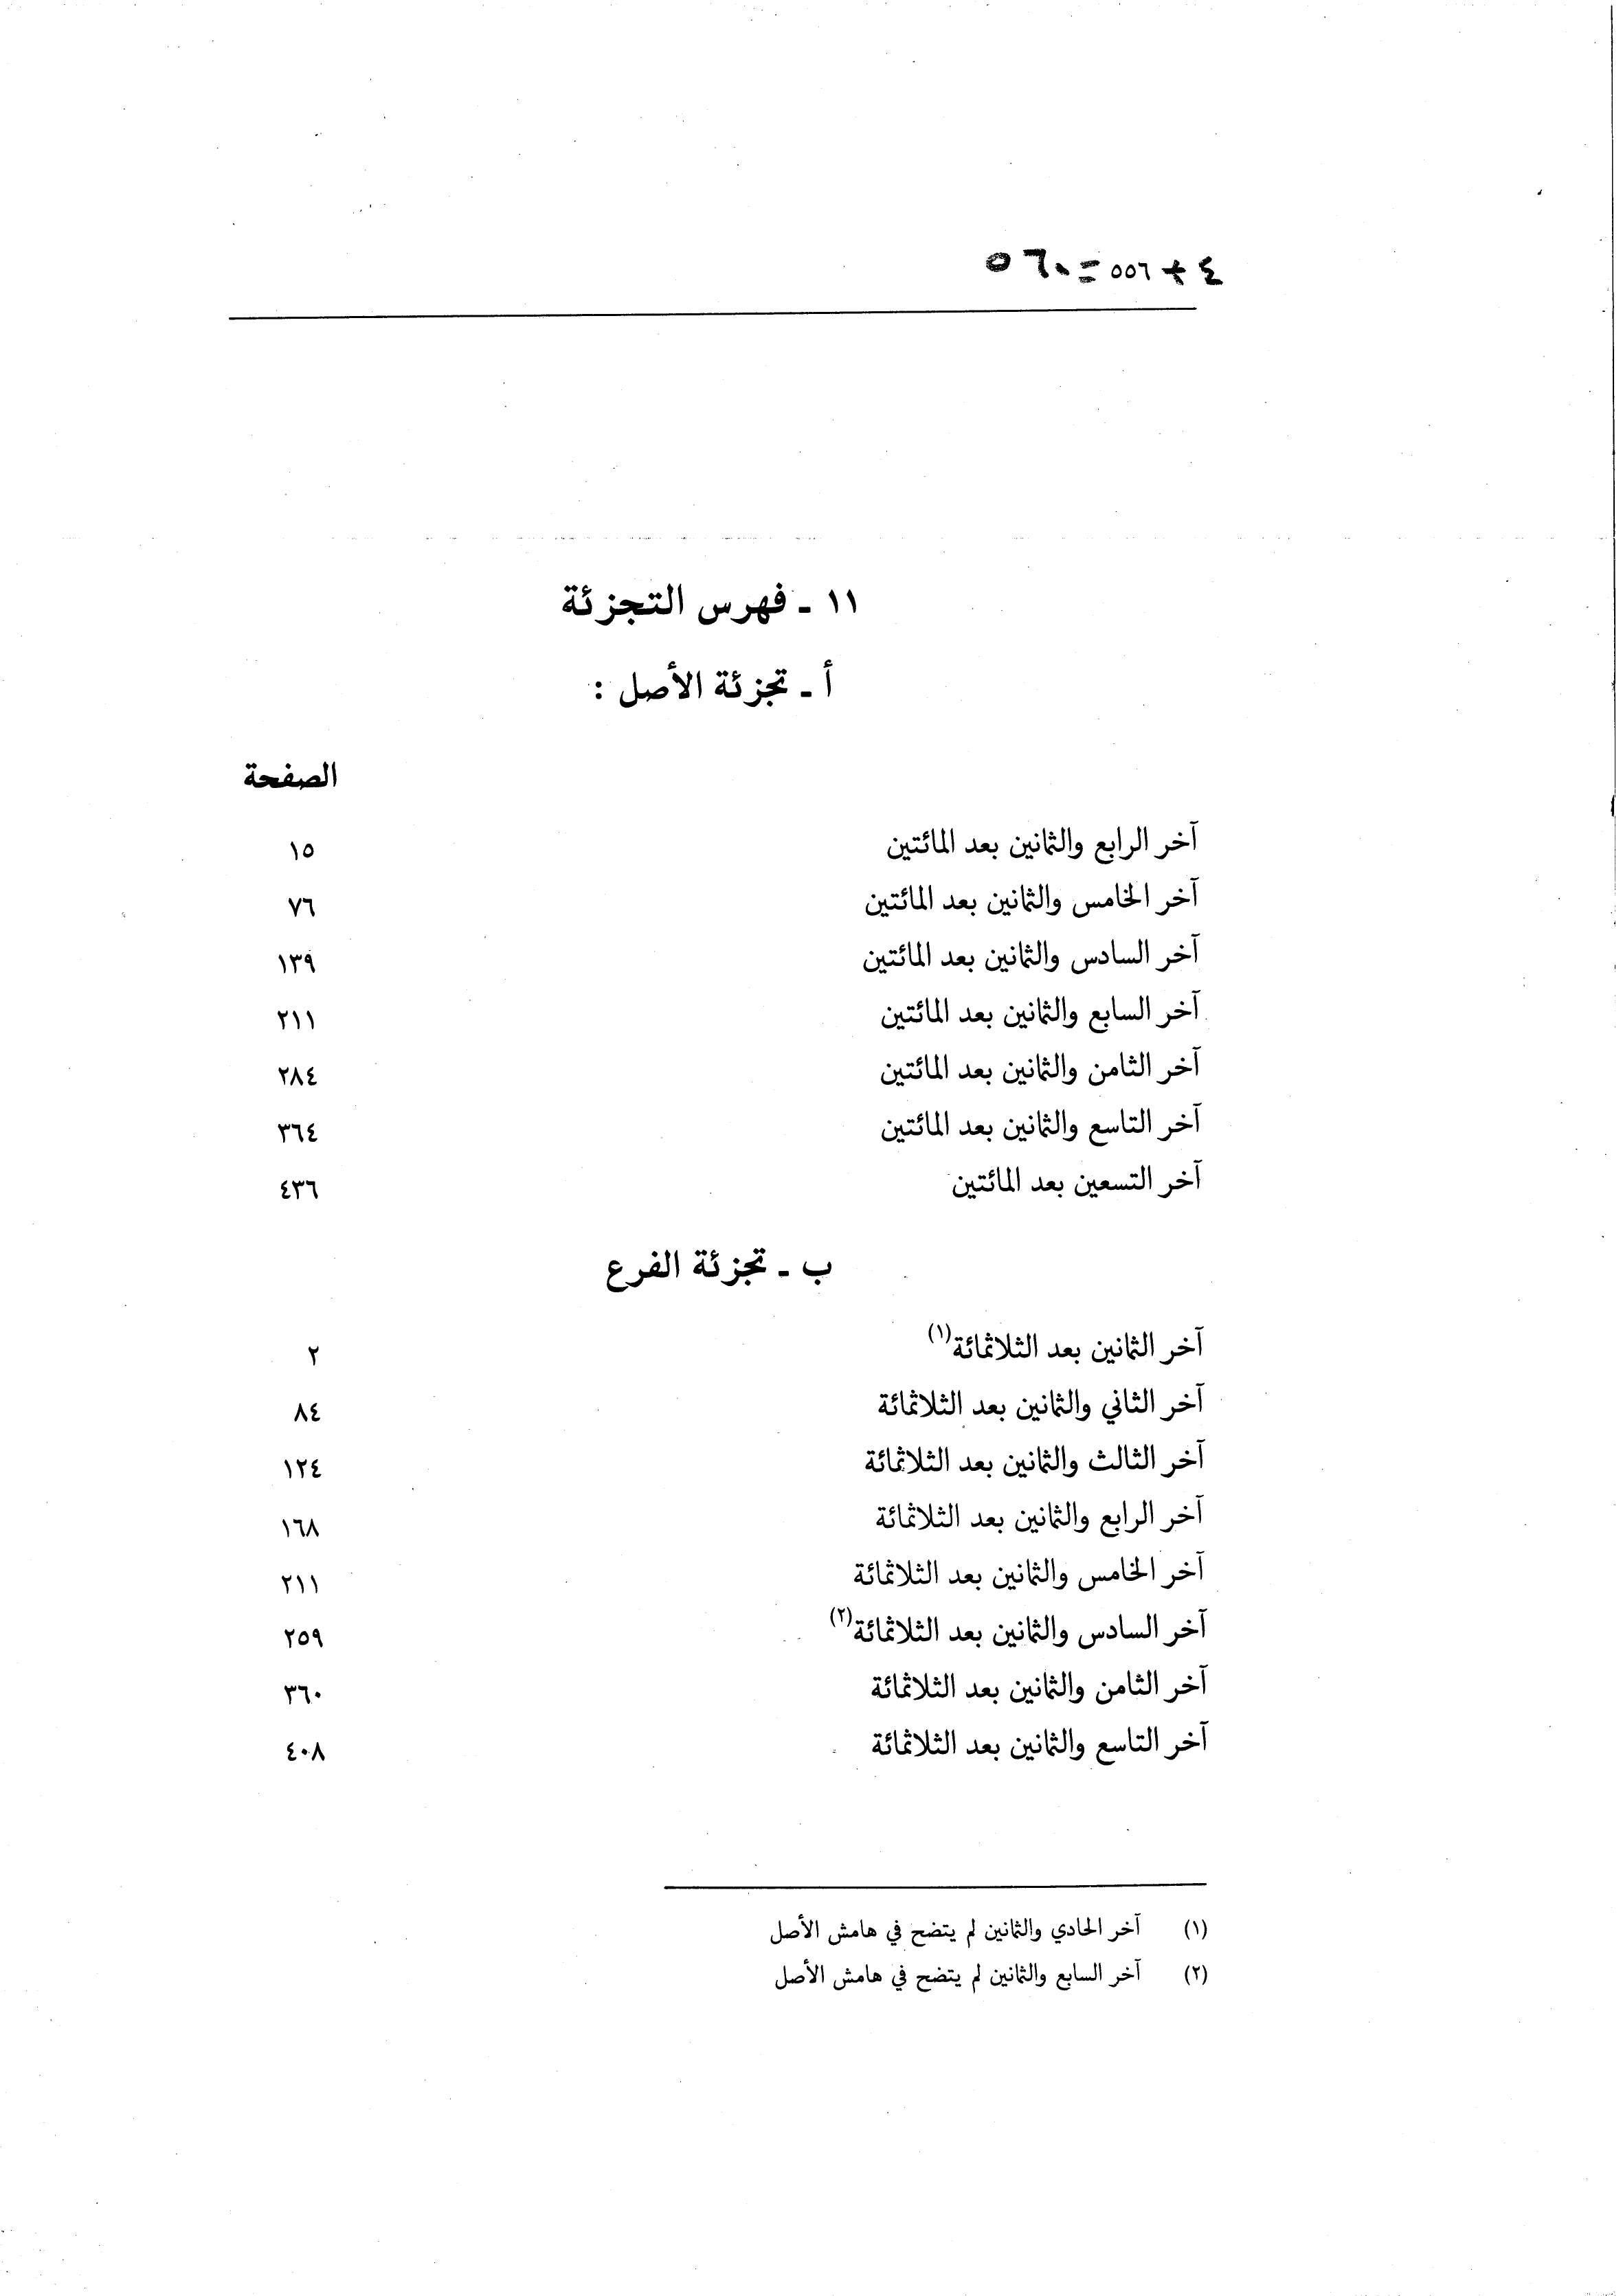 ٥٦٠ = ٥٥٦ + ٤
١١ ـ فهرس التجزئة
أ ـ تجزئة الأصل :
الصفحة
آخر الرابع والثمانين بعد المائتين ١٥
آخر الخامس والثمانين بعد المائتين ٧٦
آخر السادس والثمانين بعد المائتين ١٣٩
آخر السابع والثمانين بعد المائتين ٢١١
آخر الثامن والثمانين بعد المائتين ٢٨٤
آخر التاسع والثمانين بعد المائتين ٣٦٤
آخر التسعين بعد المائتين ٤٣٦
ب ـ تجزئة الفرع
آخر الثمانين بعد الثلاثمائة(١) ٢
آخر الثاني والثمانين بعد الثلاثمائة ٨٤
آخر الثالث والثمانين بعد الثلاثمائة ١٢٤
آخر الرابع والثمانين بعد الثلاثمائة ١٦٨
آخر الخامس والثمانين بعد الثلاثمائة ٢١١
آخر السادس والثمانين بعد الثلاثمائة(٢) ٢٥٩
آخر الثامن والثمانين بعد الثلاثمائة ٣٦٠
آخر التاسع والثمانين بعد الثلاثمائة ٤٠٨
(١) آخر الحادي والثمانين لم يتضح في هامش الأصل
(٢) آخر السابع والثمانين لم يتضح في هامش الأصل